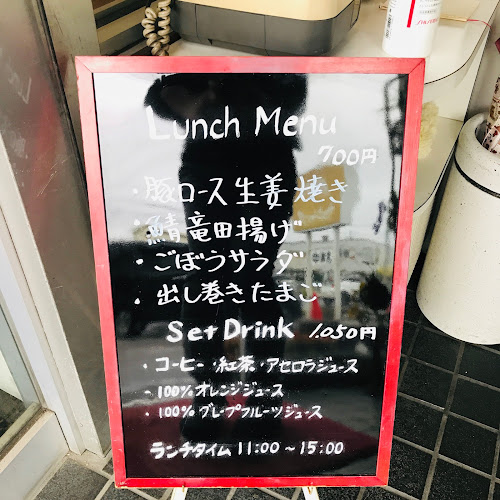 Lunch Menu
700円
・豚ロース生姜焼き
・鯖竜田揚げ
・ごぼうサラダ
・出し巻きたまご
Set Drink 1,050円
・コーヒー・紅茶・アセロラジュース
・100%オレンジジュース
・100%グレープフルーツジュース
ランチタイム 11:00～15:00